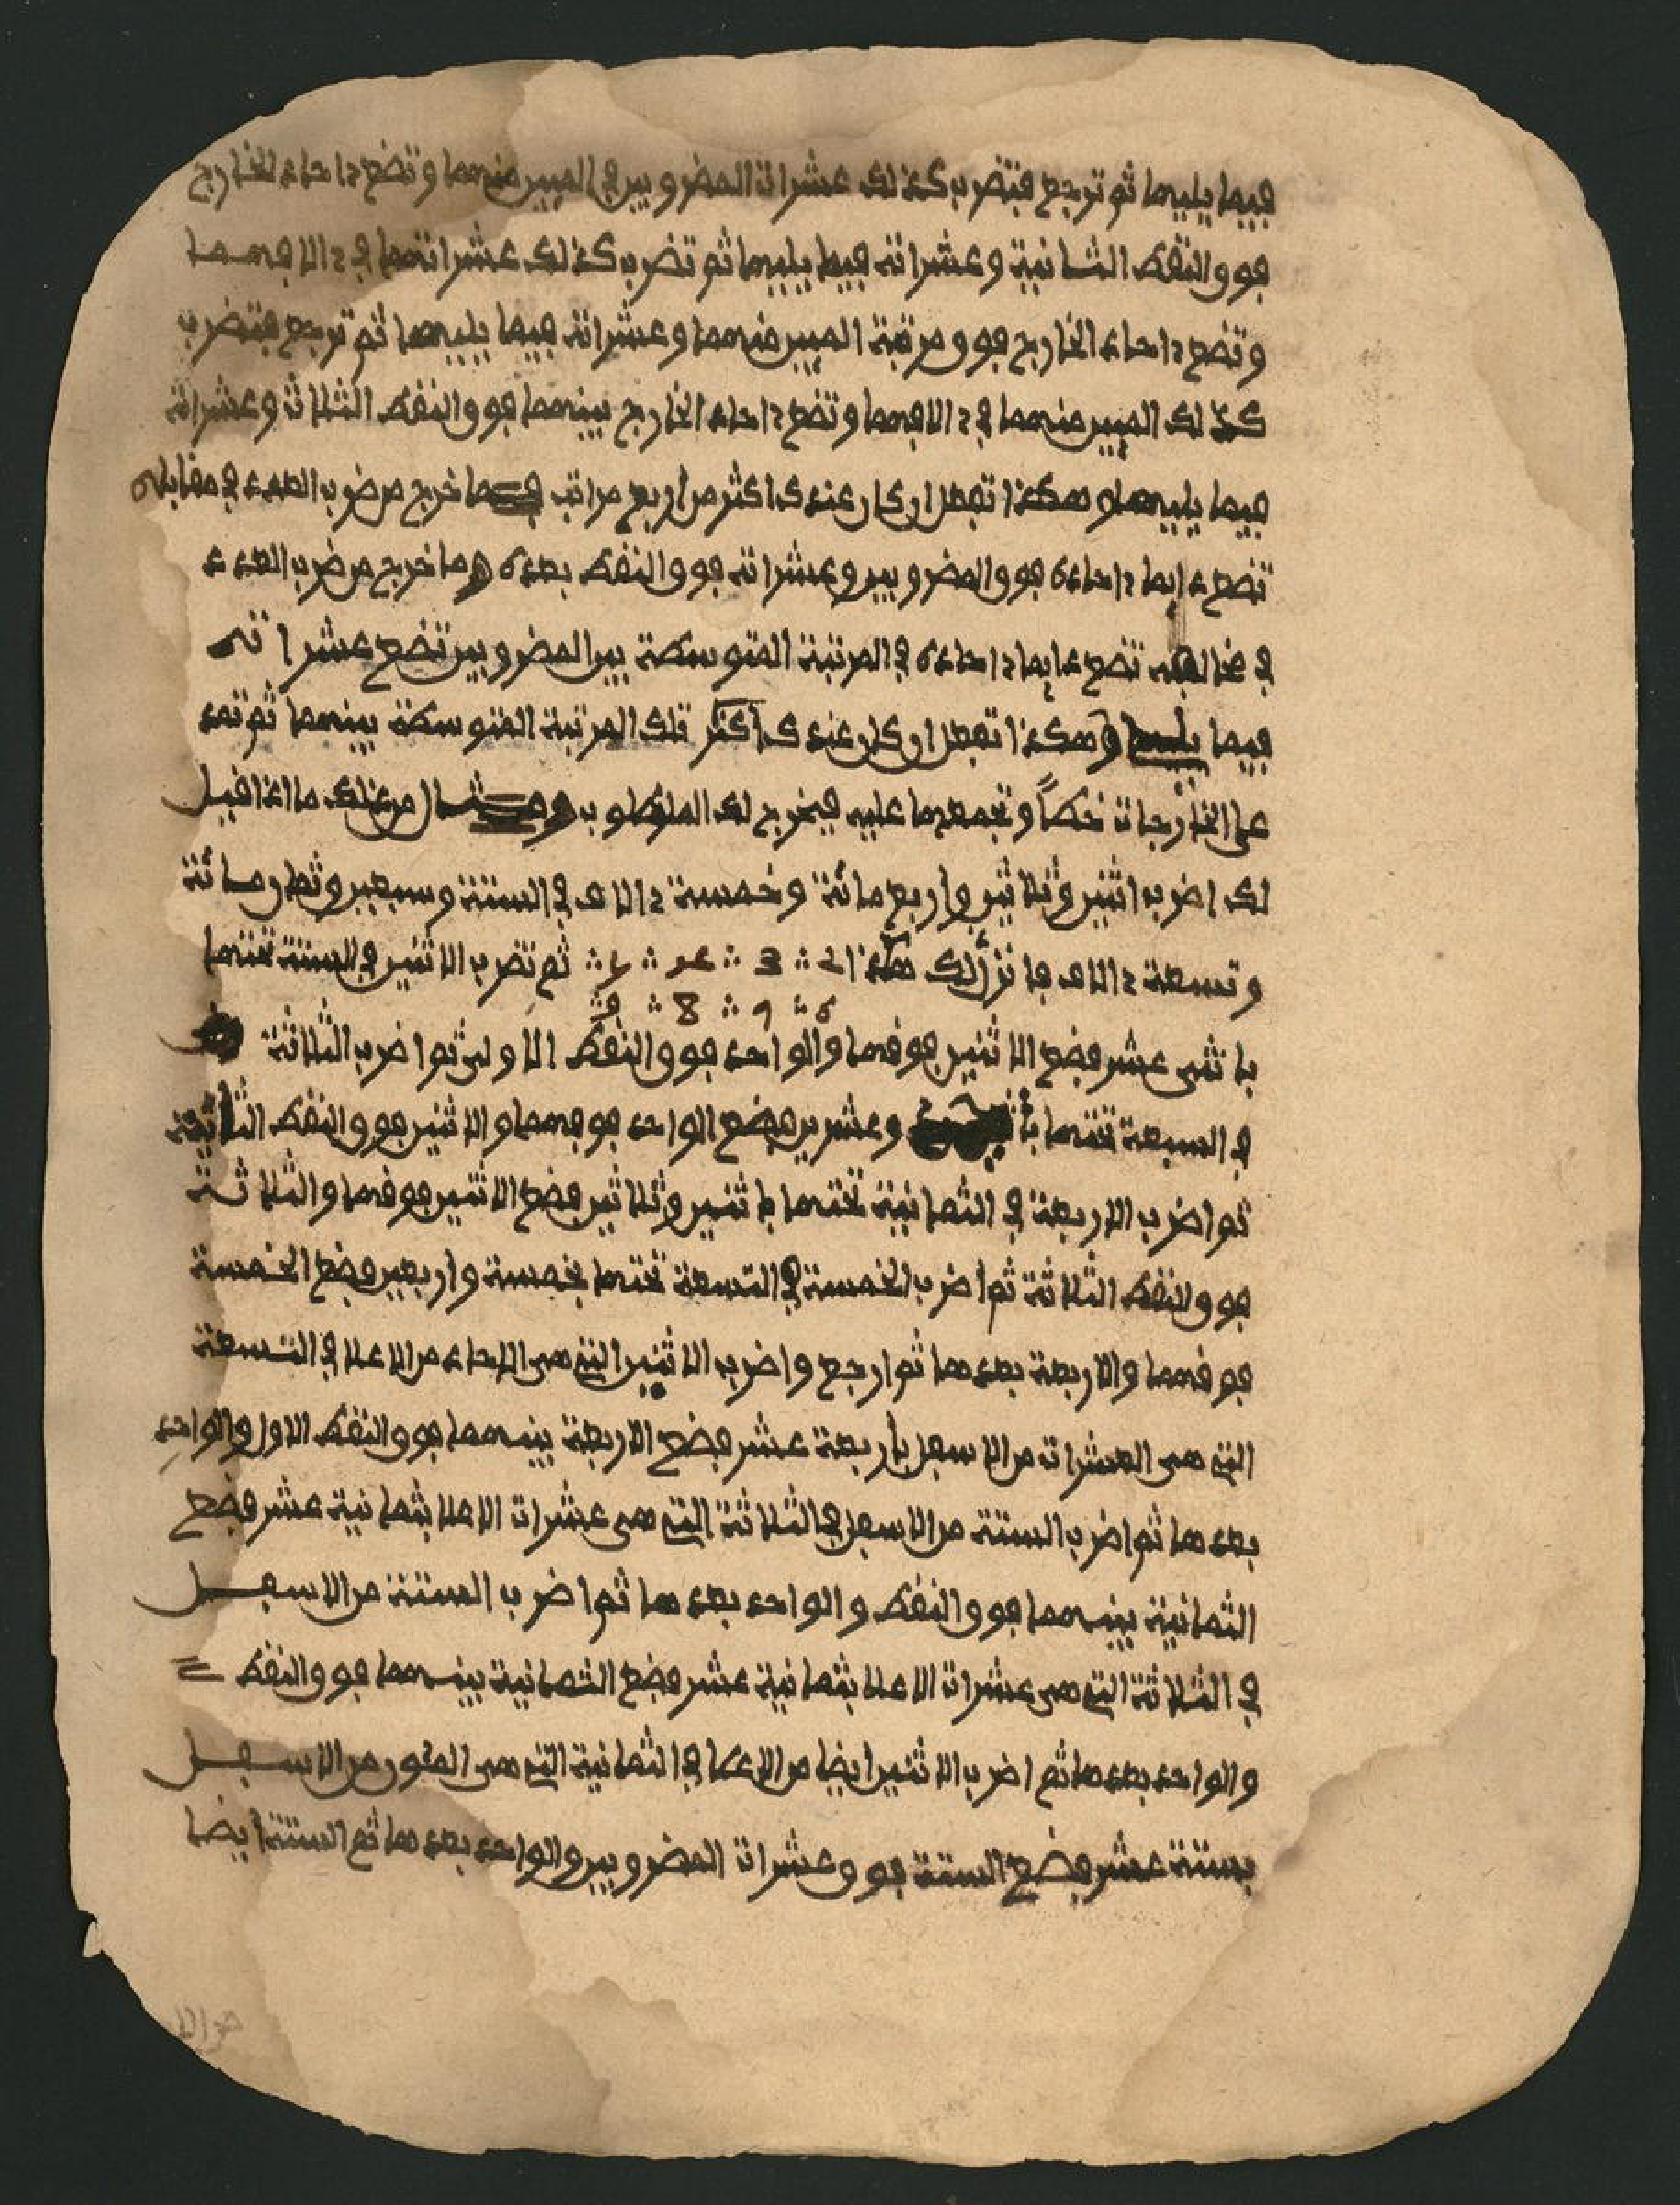 فيما يليهما ثم ترجع فتضرب كذلك عشرات المضروبين في الميين منهما وتضع ءاحاد الخارج
فوق النقط الثانية وعشراته فيما يليهما ثم تضرب كذلك عشراتهما في ءالافهما
وتضع ءاحاد الخارج فوق مرتبة الميين منهما وعشراته فيما يليهما ثم ترجع فتضرب
كذلك الميين منهما في ءالافهما وتضع ءاحاد الخارج بينهما فوق النقط الثلاث وعشراته
فيما يليهما وهكذا تفعل ان كان عندك اكثر من اربع مراتب فما خرج من ضرب العدد في مقابله
تضع دايما ءاحاده فوق المضروبين وعشراته فوق النقط بعده وما خرج من ضرب العدد
في مخالفه تضع دايما ءاحاده في المرتبة المتوسطة بين المضروبين تضع عشراته
فيما يليها وهكذا تفعل ان كان عندك أكثر تلك المرتبة المتوسطة بينهما ثم تمد
على الخارجات خطاً وتجمعهما عليه فيخرج لك المطلوب ومثال من ذلك ما اذا قيل
لك اضرب اثنين وثلاثين واربع مائة وخمسة ءالاف في الستة وسبعين وثمان مائة
وتسعة ءالاف فانزل لك هكذا 2 ∴ 3 ∴ 4 ∴ 5 ∴ ثم تضرب الاثنين في الستة تحتها
6 ∴ 9 ∴ 8 ∴ 9
باثنى عشر فضع الاثنين فوقهما والواحد فوق النقط الاولى ثم اضرب الثلاثة
في السبعة تحتها وعشرين فضع الواحد فوقهما والاثنين فوق النقط الثانية
ثم اضرب الاربعة في الثمانية تحتها باثنين وثلاثين فضع الاثنين فوقهما والثلاثة
فوق النقط الثلاثة ثم اضرب الخمسة في التسعة تحتها بخمسة واربعين فضع الخمسة
فوقهما والاربعة بعدها ثم ارجع واضرب الاثنين التى هى الاحاد من الاعلا في السبعة
التى هى العشرات من الاسفل باربعة عشر فضع الاربعة بينهما فوق النقط الاول والواحد
بعدها ثم اضرب الستة من الاسفل في الثلاثة التى هى عشرات الاعلا بثمانية عشر فضع
الثمانية بينهما فوق النقط والواحد بعدها ثم اضرب الستة من الاسفل
في الثلاثة التى هى عشرات الاعلا بثمانية عشر فضع الثمانية بينهما فوق النقط
والواحد بعدها ثم اضرب الاثنين ايضا من الاعلا في الثمانية التى هى المئون من الاسفل
بستة عشر فضع الستة فوق عشرات المضروبين والواحد بعدها ثم الستة ايضا
من الا